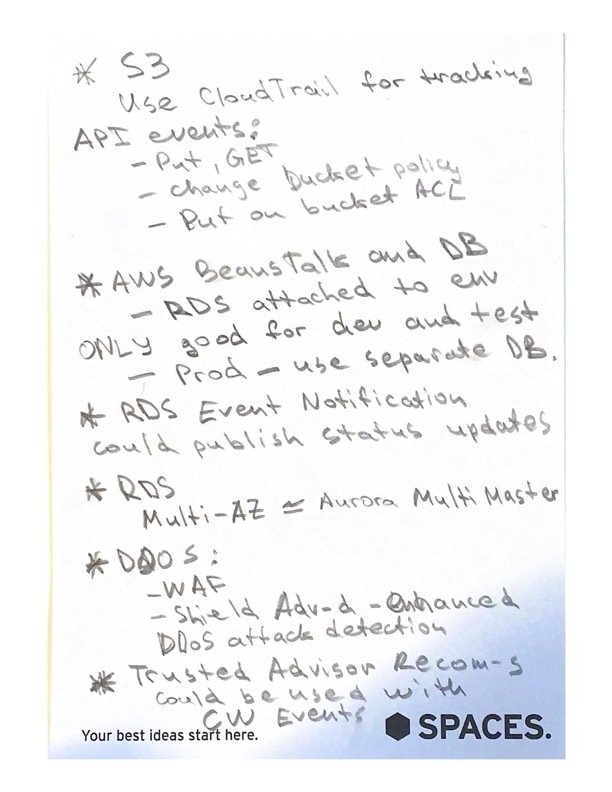 * S3
Use CloudTrail for tracking
API events:
- Put, GET
- change bucket policy
- Put on bucket ACL
* AWS BeansTalk and DB
- RDS attached to env
ONLY good for dev and test
- Prod - use separate DB.
* RDS Event Notification
could publish status updates
* RDS
Multi-AZ ≃ Aurora Multi Master
* DDOS:
- WAF
- Shield Adv-d - Enhanced
DDoS attack detection
* Trusted Advisor Recom-s
could be used with
CW Events
Your best ideas start here.
SPACES.